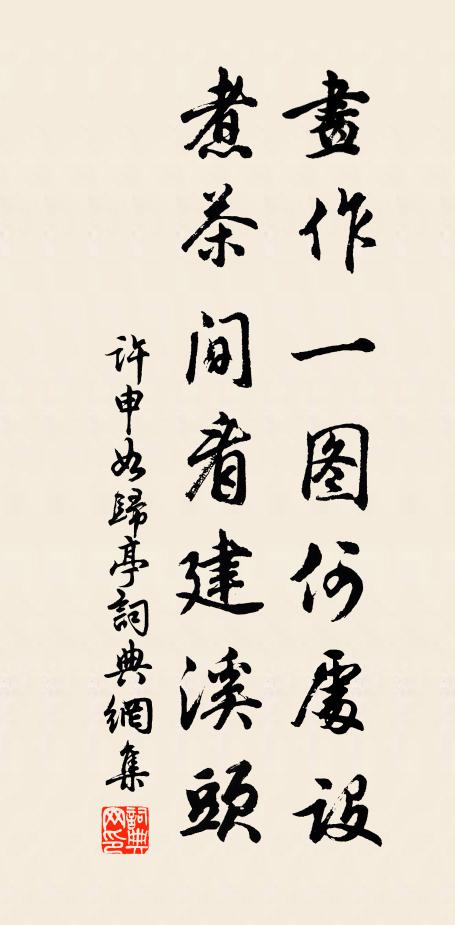 畫作一图何處設
煮茶间看建溪頭
許申如歸亭詞典網集
詞典网印